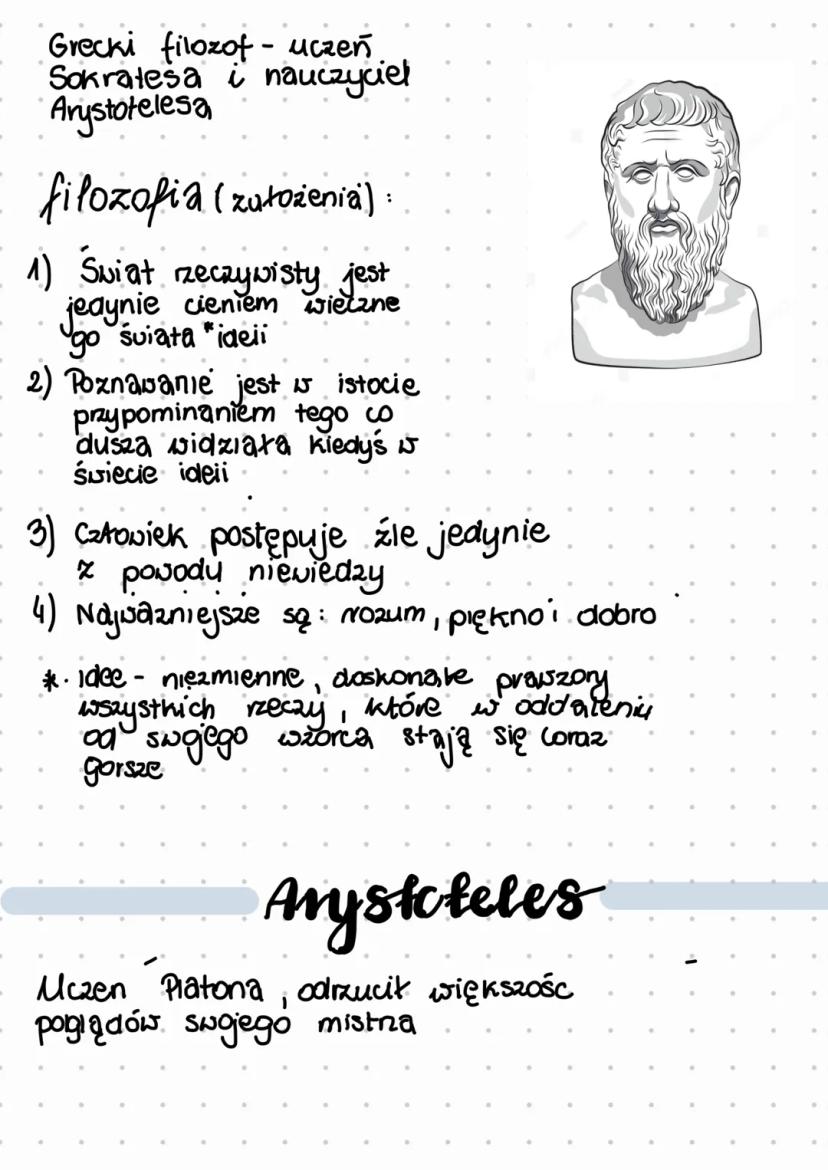 Grecki filozof - uczeń
Sokratesa i nauczyciel
Arystotelesa
filozofia (założenia) :
1) Świat rzeczywisty jest
jedynie cieniem wieczne
go świata *ideii
2) Poznawanie jest w istocie
przypominaniem tego co
dusza widziała kiedyś w
świecie ideii
3) Człowiek postępuje źle jedynie
z powodu niewiedzy
4) Najważniejsze są : rozum, piękno i dobro
*. idee - niezmienne, doskonałe prawzory
wszystkich rzeczy, które w oddaleniu
od swojego wzorca stają się coraz
gorsze
Arystoteles
Uczeń Platona, odrzucił większość
poglądów swojego mistrza